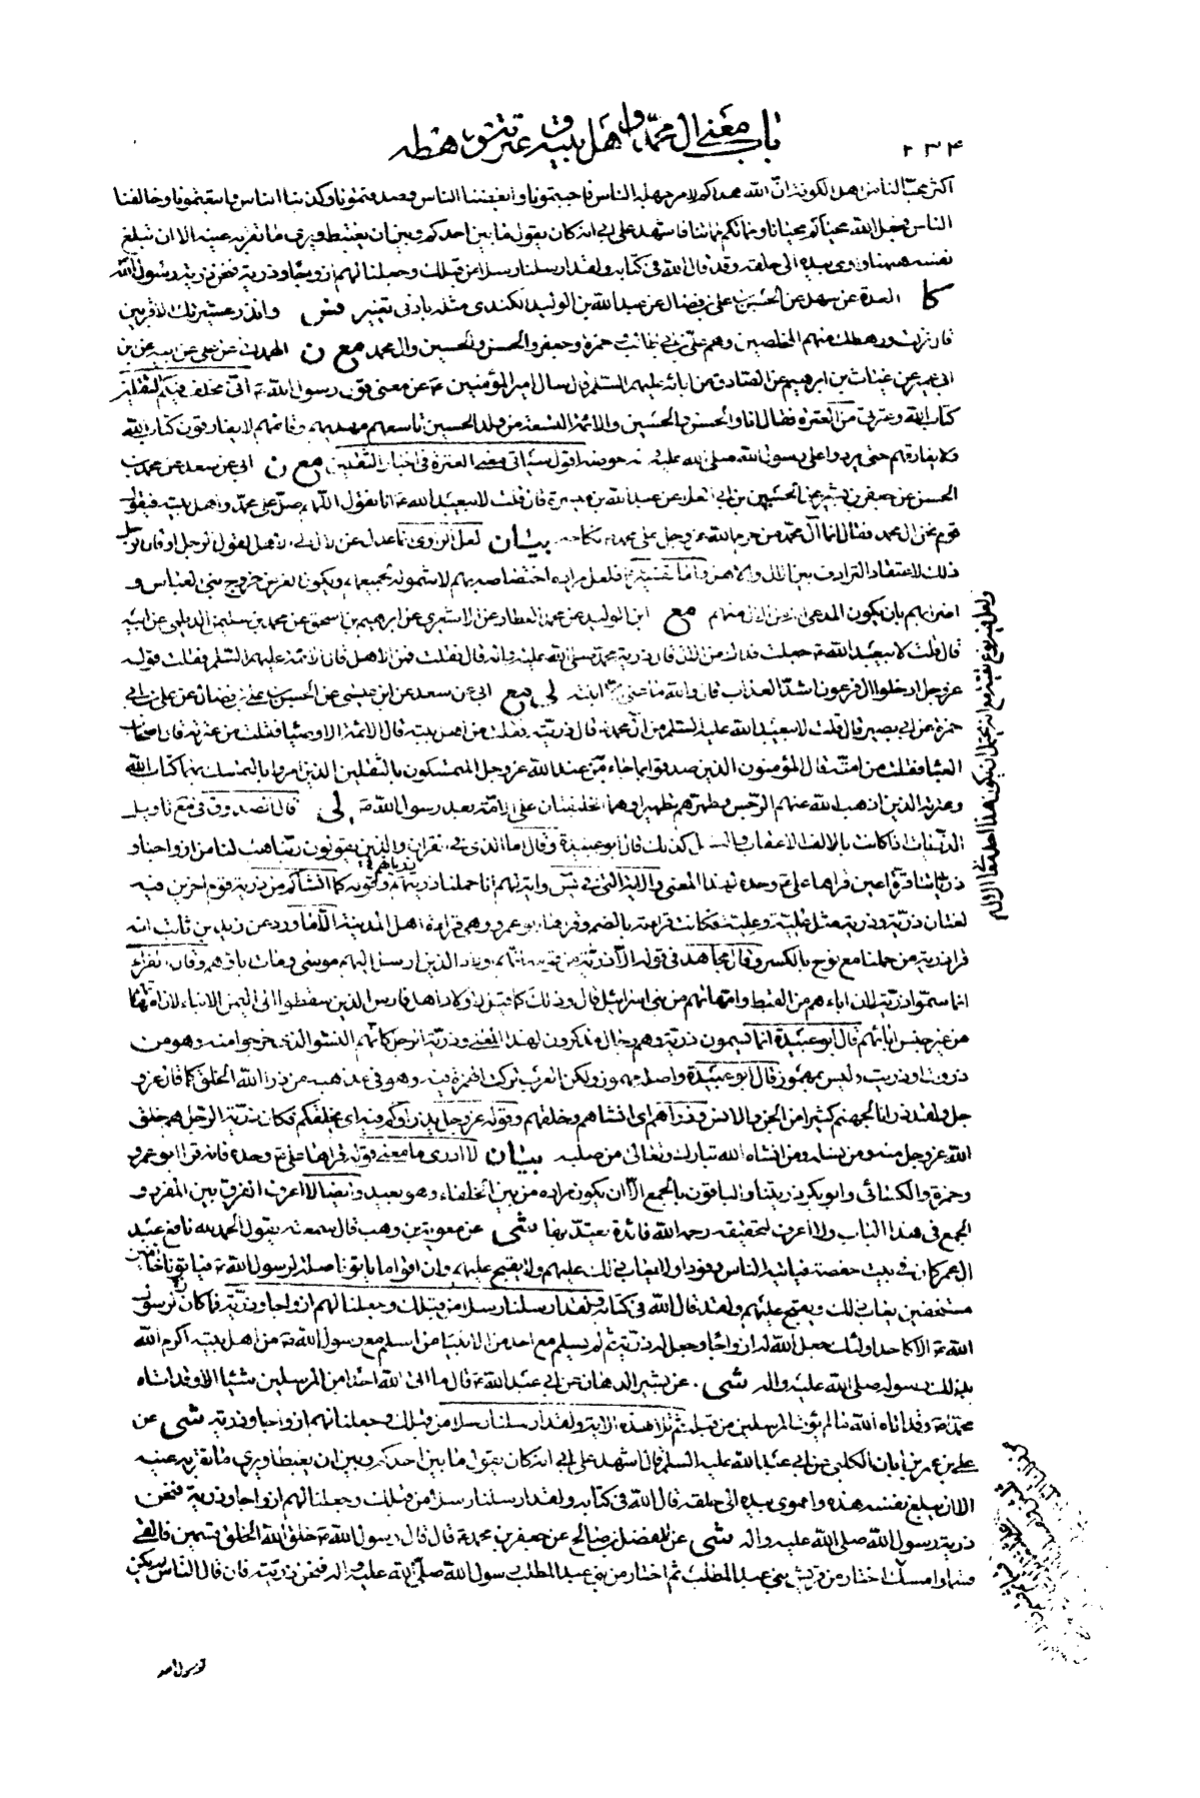 ٢٣٤
باب معنى آل محمد واهل بيته وعترته ورهطه
اكثر محبا الناس اهل الكوفة ان الله هداكم لامر جهله الناس فاحببتمونا وابغضنا الناس وصدقتمونا وكذبنا الناس واتبعتمونا وخالفنا
الناس فجعل الله محياكم محيانا ومماتكم مماتنا فاشهد على ابى انه كان يقول ما بين احدكم وبين ان يغتبط ويرى ما تقر به عينه الا ان تبلغ
نفسه هيهنا واوى بيده الى حلقه وقد قال الله فى كتابه ولقد ارسلنا رسلا من قبلك وجعلنا لهم ازواجا وذرية فنحن ذرية رسول الله
كا العدة عن سهل عن الحسن بن على بن فضال عن عبد الله بن الوليد الكندى مثله بادنى تغيير فس وانذر عشيرتك الاقربين
قال نزلت ورهطك منهم المخلصين وهم على بن ابى طالب وحمزة وجعفر والحسن والحسين وآل محمد مع ن الهمدانى عن على عن ابيه عن ابن
ابى عمير عن غياث بن ابراهيم عن الصادق عن ابائه عليهم السلم قال سال امير المؤمنين عن معنى قول رسول الله انى مخلف فيكم الثقلين
كتاب الله وعترتى من العترة فقال انا والحسن والحسين والائمة التسعة من ولد الحسين تاسعهم مهديهم وقائمهم لا يفارقون كتاب الله
ولا يفارقهم حتى يردوا على رسول الله صلى الله عليه حوضه اقول سياتى معنى العترة فى اخبار الثقلين مع ن ابى عن سعد عن محمد بن
الحسن عن جعفر بن بشير عن الحسين بن ابى العلا عن عبد الله بن ميسرة قال قلت لابى عبد الله انا نقول اللهم صل على محمد واهل بيته فيقول
قوم نحن آل محمد فقال انما آل محمد من حرم الله عز وجل على محمد نكاحه بيان لعل الراوى
ذلك لاعتقاد الترادف بين الآل والاهل
ابن الوليد عن محمد العطار عن الاشعرى عن ابراهيم بن اسحق عن محمد بن سليمن الديلمى عن ابيه
قال قلت لابى عبد الله جعلت فداك من الآل قال ذرية محمد صلى الله عليه وآله قال فقلت فمن الاهل قال الائمة عليهم السلم فقلت قوله
عز وجل ادخلوا آل فرعون اشد العذاب قال والله ما عنى الا ابنته لى مع ابى عن سعد عن ابن عيسى عن الحسن بن على بن فضال عن على بن ابى
حمزة عن ابى بصير قال قلت لابى عبد الله عليه السلم من آل محمد قال ذريته فقلت من اهل بيته قال الائمة الاوصيا فقلت من عترته قال اصحاب
العبا فقلت من امته قال المؤمنون الذين صدقوا بما جاء من عند الله عز وجل المتمسكون بالثقلين الذين امروا بالتمسك بهما كتاب الله
وعترته الذين اذهب الله عنهم الرجس وطهرهم تطهيرا وهما الخليفتان على الامة بعد رسول الله لى قال الصدوق فى مع تاويل
الذريات اذا كانت بالالف الاعقاب والنسل كذلك قال ابو عبيدة وقال اما الذى فى القران والذين يقولون ربنا هب لنا من ازواجنا و
ذرياتنا قرة اعين قراها على وحده لهذا المعنى والاية التى فى يس واية لهم انا حملنا ذريتهم وقوله كما انشاكم من ذرية قوم اخرين فيه
لغتان ذرية وذرية مثل علية وعلية فكانت قرائته بالضم وقراها ابو عمرو وهى قراءة اهل المدينة الا ما ورد عن زيد بن ثابت انه
قرا ذرية من حملنا مع نوح بالكسر وقال مجاهد فى قوله الا ذرية من قومه انهم اولاد الذين ارسل اليهم موسى ومات اباؤهم وقال الفراء
انما سموا ذرية لان اباءهم من القبط وامهاتهم من بنى اسرائيل قال وذلك كما قيل لاولاد اهل فارس الذين سقطوا الى اليمن الابناء لان امهاتهم
من غير جنس ابائهم قال ابو عبيدة انما يسمون ذرية وهم رجال مذكرون لهذا المعنى وذرية الرجل كانهم النشو الذى خرجوا منه وهو من
ذروت او ذريت وليس بمهموز قال ابو عبيدة واصله مهموز ولكن العرب تركت الهمزة فيه وهو فى مذهبه من ذرا الله الخلق كما قال عز و
جل ولقد ذرانا لجهنم كثيرا من الجن والانس وذراهم اى انشاهم وخلقهم وقوله عز وجل يذرؤكم فيه اى يخلقكم فكان ذرية الرجل هم خلق
الله عز وجل منه ومن نسله ومن انشاه الله تبارك وتعالى من صلبه بيان لا ادرى ما معنى قوله قراها على وحده فانه قرا ابو عمرو
وحمزة والكسائى وابو بكر ذريتنا والباقون بالجمع الا ان يكون مراده من بين الخلفاء وهو بعيد وايضا لا اعرف الفرق بين المفرد و
الجمع فى هذا الباب ولا اعرف لتحقيقه رحمه الله فائدة يعتد بها شى عن معوية بن وهب قال سمعته يقول الحمد لله نافع عبد
آل عمر كان فى بيت حفصة فياتيه الناس وفودا ولا يعاب ذلك عليهم ولا يقبح عليهم وان اقواما ياتونا صلة لرسول الله فياتونا خائفين
مستخفين يعاب ذلك ويقبح عليهم ولقد قال الله فى كتابه ولقد ارسلنا رسلا من قبلك وجعلنا لهم ازواجا وذرية فما كان لرسول
الله الا كاحد اولئك جعل الله له ازواجا وجعل له ذرية ثم لم يسلم مع احد من الانبيا من اسلم مع رسول الله من اهل بيته اكرم الله
بذلك رسوله صلى الله عليه وآله شى عن بشير الدهان عن ابى عبد الله قال ما اتى الله احدا من المرسلين شيئا الا وقد اتاه
محمدا وقد اتاه الله ما لم يؤت المرسلين من قبله ثم تلا هذه الاية ولقد ارسلنا رسلا من قبلك وجعلنا لهم ازواجا وذرية شى عن
على بن عمر بن ابان الكلبى عن ابى عبد الله عليه السلم قال اشهد على ابى انه كان يقول ما بين احدكم وبين ان يغبط او يرى ما تقر به عينه
الا ان يبلغ نفسه هذه واهوى بيده الى حلقه قال الله فى كتابه ولقد ارسلنا رسلا من قبلك وجعلنا لهم ازواجا وذرية فنحن
ذرية رسول الله صلى الله عليه وآله شى عن المفضل بن صالح عن جعفر بن محمد قال قال رسول الله خلق الله الخلق قسمين فالقى
قسما وامسك قسما ثم اختار من قريش بنى عبد المطلب ثم اختار من بنى عبد المطلب رسول الله صلى الله عليه وآله فنحن ذريته فان قال الناس